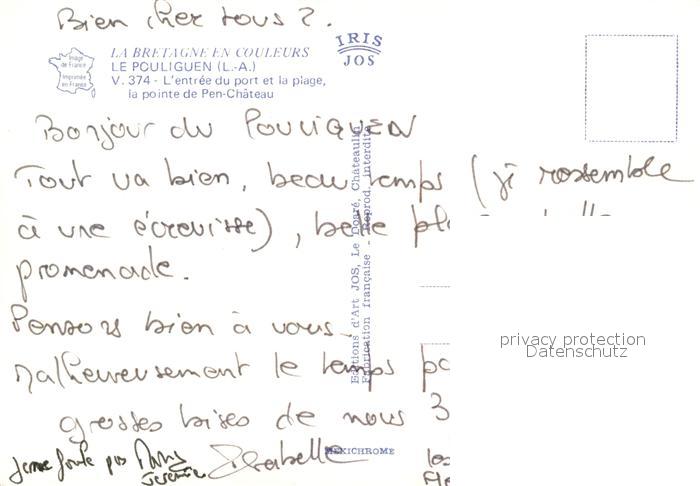 Bien cher tous 2.
IRIS
JOS
Image
de France
Imprimée
en France
LA BRETAGNE EN COULEURS
LE POULIGUEN (L.-A.)
V. 374 - L'entrée du port et la plage,
la pointe de Pen-Château
Bonjour du POULIGUEN
Tout va bien, beau temps (je ressemble
à une écrevisse), belle
promenade.
Pensons bien à vous.
Malheureusement le temps
grosses bises de nous 3
Isabelle
Editions d'Art JOS, Le Doaré, Châteaulin
Fabrication française - Reprod. interdite
MEXICHROME
privacy protection
Datenschutz